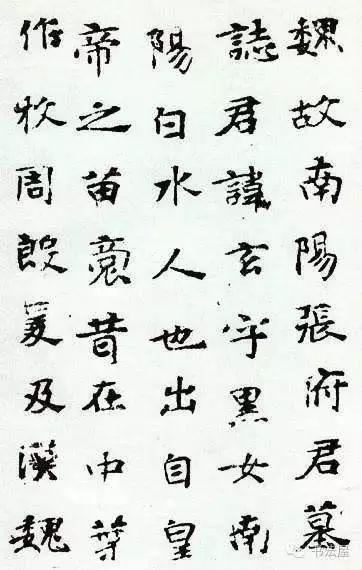 魏故南陽張府君墓
誌君諱玄字黑女南
陽白水人也出自皇
帝之苗裔昔在中葉
作牧周殷爰及漢魏
书法屋